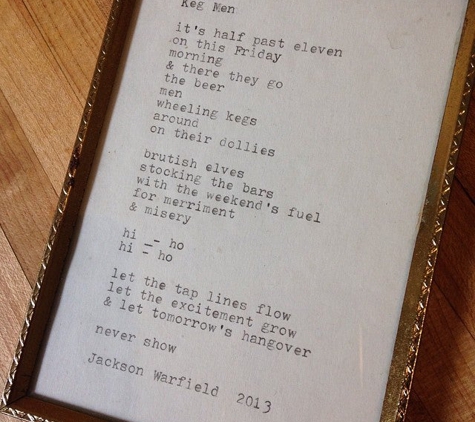 Keg Men
it's half past eleven
on this Friday
morning
& there they go
the beer
men
wheeling kegs
around
on their dollies
brutish elves
stocking the bars
with the weekend's fuel
for merriment
& misery
hi -- ho
hi - ho
let the tap lines flow
let the excitement grow
& let tomorrow's hangover
never show
Jackson Warfield 2013